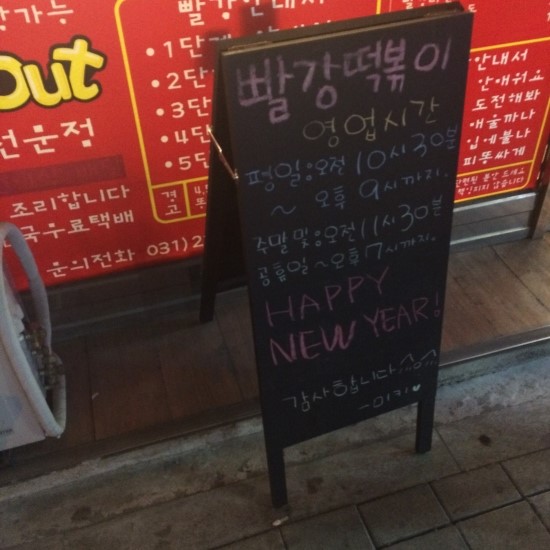 빨강떡볶이
영업시간
평일:오전 10시30분
~ 오후 9시까지.
주말 및:오전11시30분
공휴일~오후7시까지.
HAPPY
NEW YEAR!
감사합니다
-미키♥
out
전문점
조리합니다
국무료택배
문의전화 031)2
빨강안내서
•1단계
•2단
•3단
•4단
•5단
경고
안내서
안매워요
도전해봐
매울까나
입에불나
피똥싸게